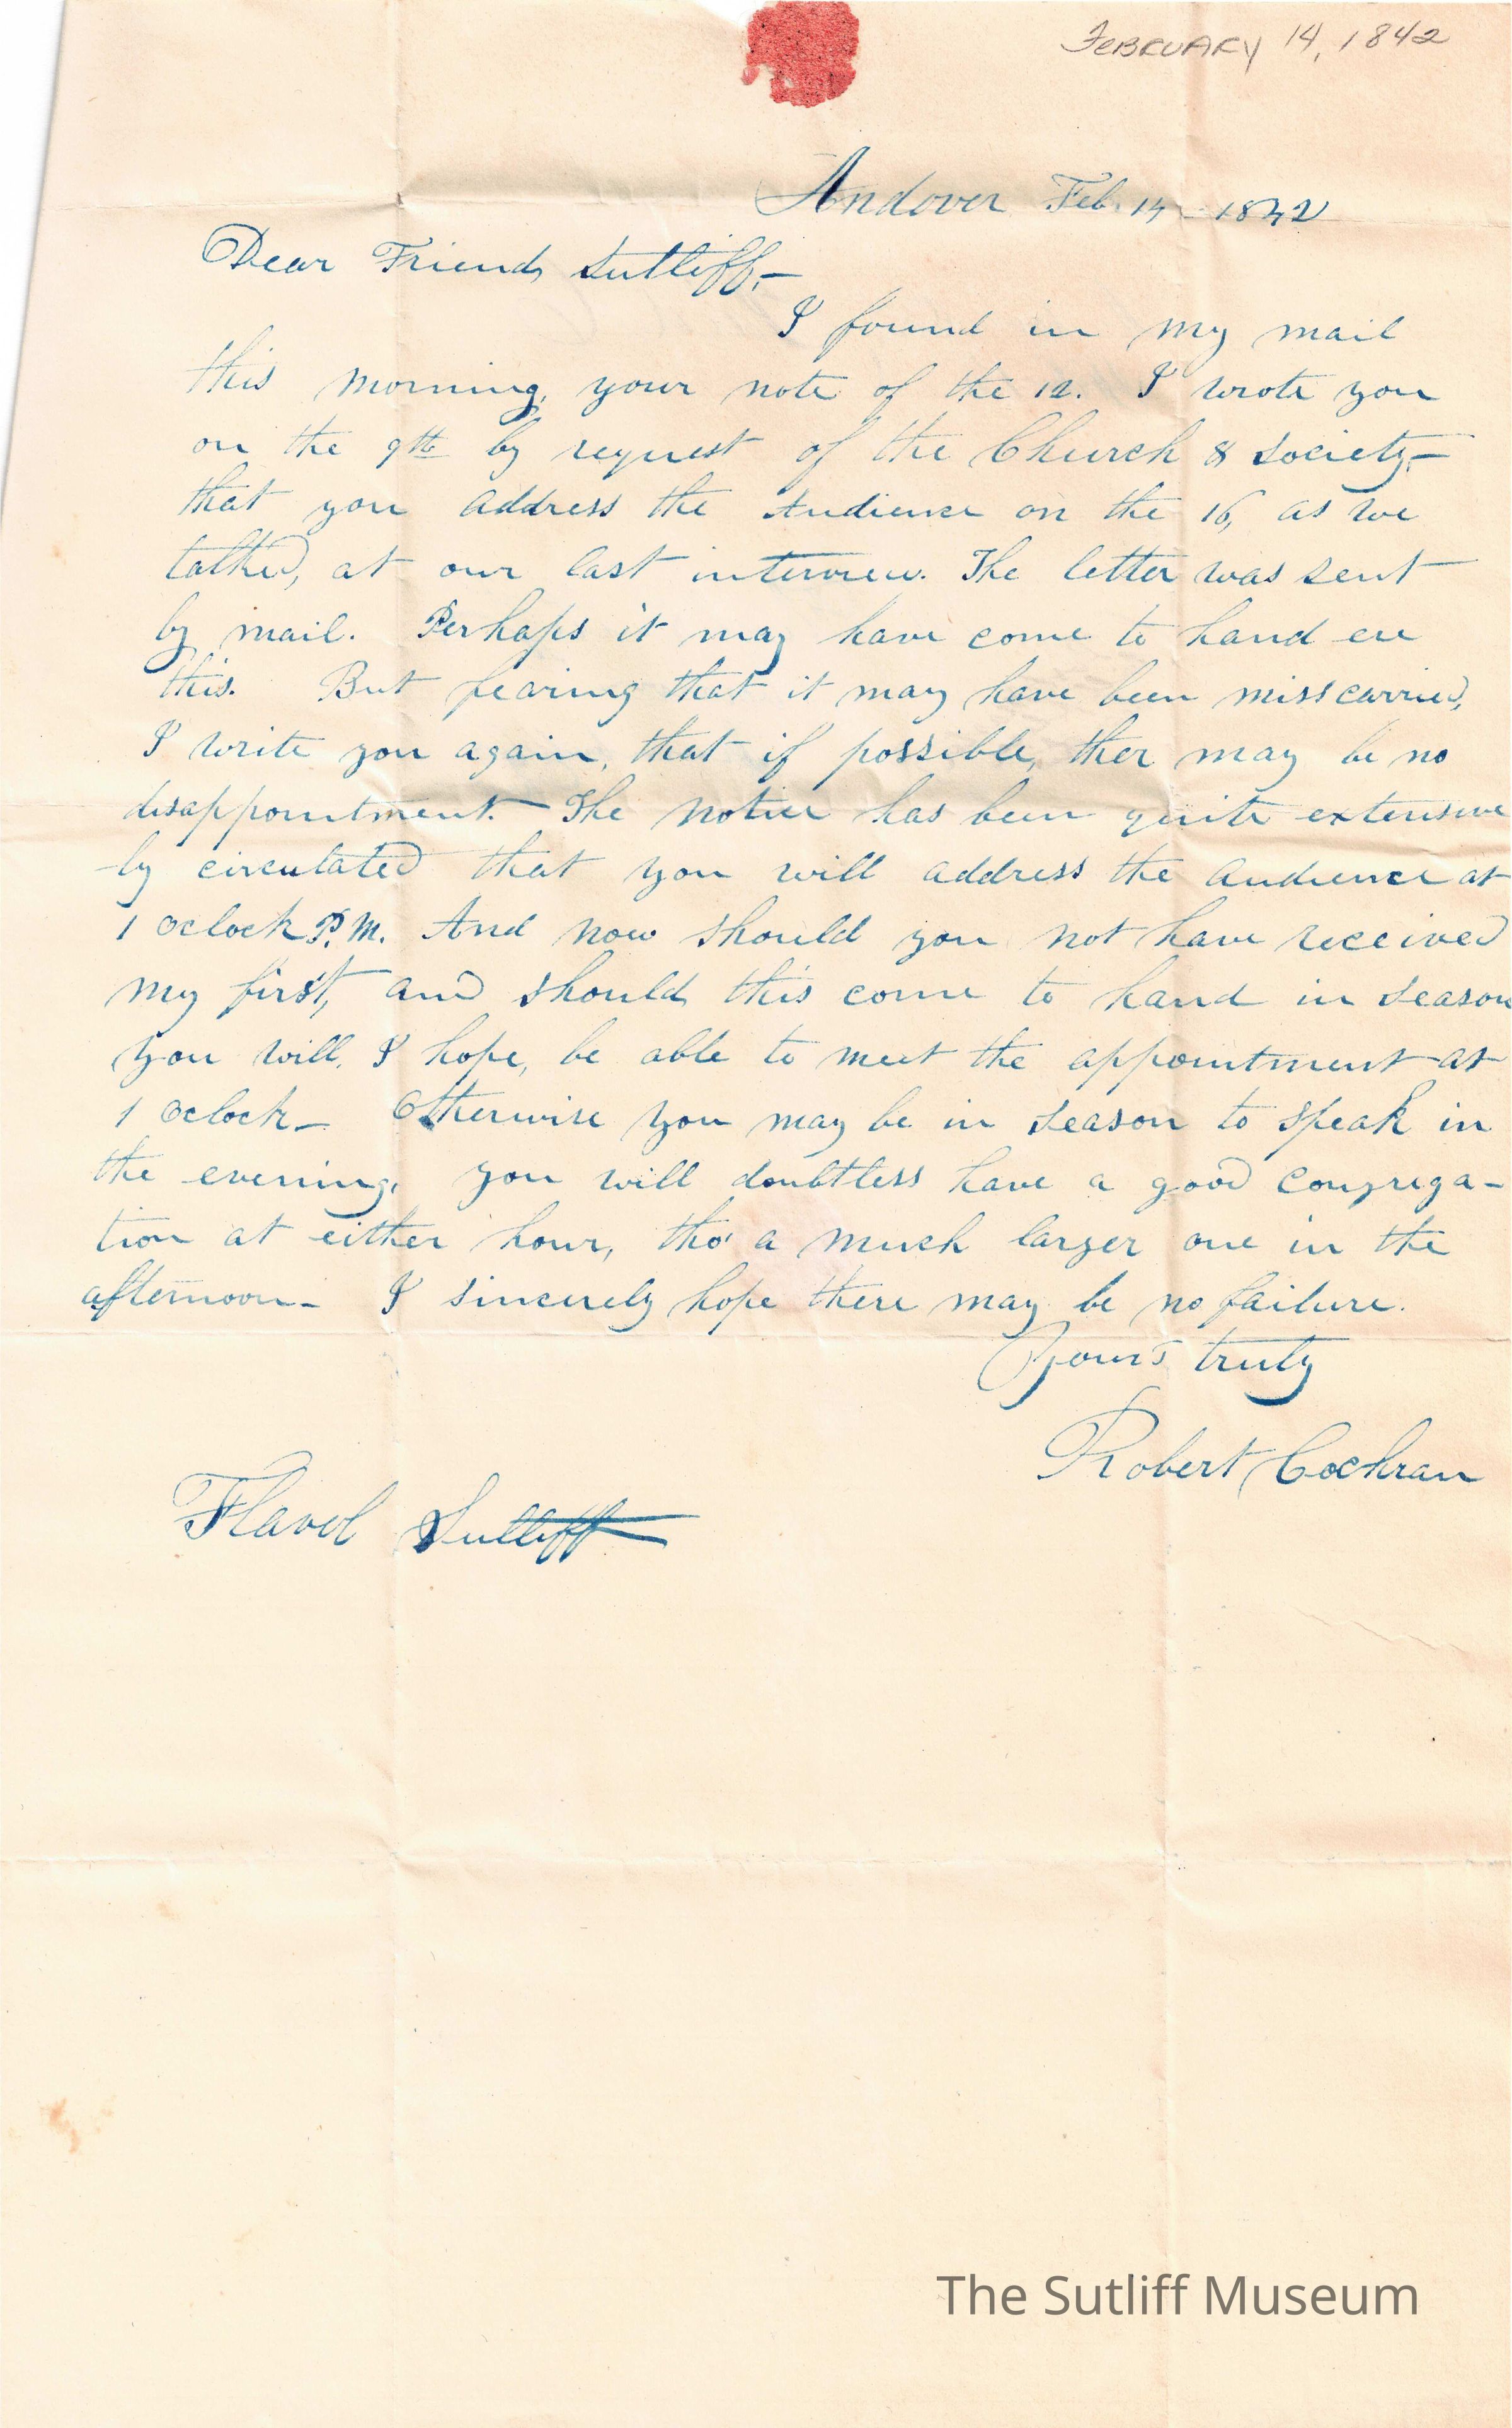 FEBRUARY 14, 1842
Andover Feb. 14 - 1842
Dear Friend Sutliff,-
I found in my mail
this morning, your note of the 12. I wrote you
on the 9th by request of the Church & Society-
that you address the Audience on the 16, as we
talked, at our last interview. The letter was sent
by mail. Perhaps it may have come to hand ere
this. But fearing that it may have been misscarried,
I write you again, that if possible, ther may be no
disappointment.- The notice has been quite extensive
-ly circulated that you will address the audience at
1 Oclock P.M. And now should you not have received
my first, and should this come to hand in season
you will, I hope, be able to meet the appointment at
1 Oclock- Otherwise you may be in season to speak in
the evening. you will doubtless have a good congrega-
tion at either hour, tho' a much larger one in the
afternoon- I sincerely hope there may be no failure.
Your's truly
Robert Cochran
Flavel Sutliff
The Sutliff Museum